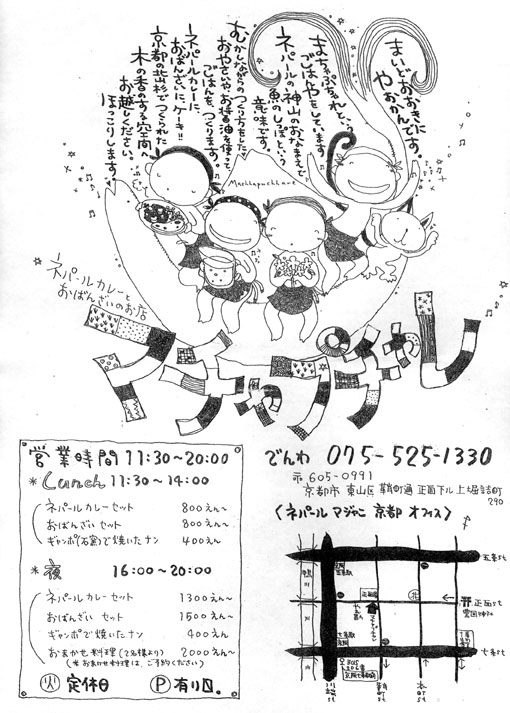 まいどおおきに
やおかんです。
まちゃぷちゃれと、いう
ごはんやをしています。
ネパールの神山のおなまえで
魚のしっぽと、いう
意味です。
むかしながらのつくり方をした
おやさいや、お醤油を使って
ごはんを、つくります。
ネパールカレーに
おばんざいにケーキ!!
京都の北山杉でつくられた
木の香のする空間へ
お越しください。
ほっこりします。
Machhapuchhare
ネパールカレーと
おばんざいのお店
マチャプチャレ
営業時間 11:30～20:00
*Lunch 11:30～14:00
ネパールカレーセット 800えん～
おばんざいセット 800えん～
ギャンポ(石窯)で焼いたナン 400えん～
*夜 16:00～20:00
ネパールカレーセット 1300えん～
おばんざいセット 1500えん～
ギャンポで焼いたナン 400えん
おまかせ料理(2名様より) 2000えん～
(※おまかせ料理は、ご予約ください)
火 定休日 P 有り。
でんわ 075-525-1330
〒605-0991
京都市 東山区 鞘町通 正面下ル 上堀詰町
290
〈ネパール マジャニ 京都 オフィス〉
五条st
正面st
豊国神社
七条st
北
鴨川
川端st
鞘町st
本町st